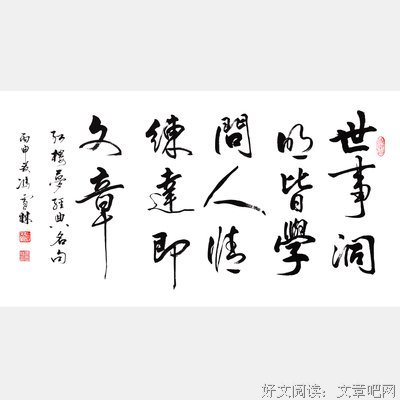 世事洞
明皆學
問人情
練達即
文章
红樓夢經典名句
丙申
好文阅读：文章吧网